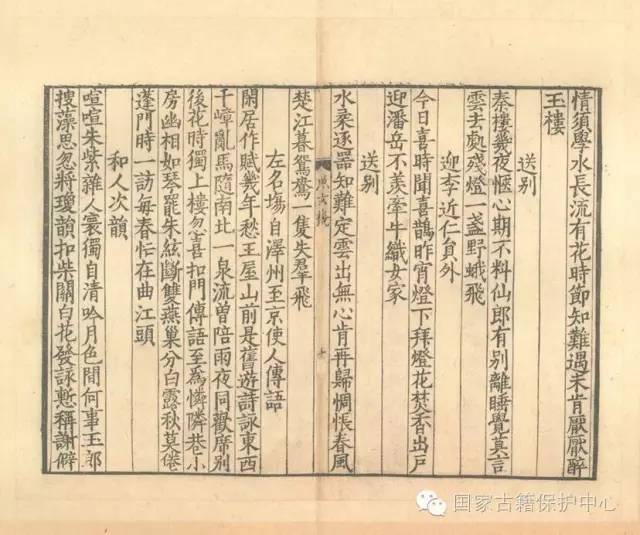 情須學水長流有花時節知難遇未肯厭厭醉
玉樓
送别
秦樓幾夜愜心期不料仙郎有别離睡覺莫言
雲去處殘燈一盞野蛾飛
迎李近仁員外
今日喜時聞喜鵲昨宵燈下拜燈花焚香出戸
迎潘岳不羨牽牛織女家
送别
水柔逐器知難定雲出無心肯再歸惆悵春風
楚江暮鴛鴦一隻失羣飛
左名塲自澤州至京使人傳語
閑居作賦幾年愁王屋山前是舊遊詩詠東西
千嶂亂馬隨南北一泉流曾陪雨夜同歡席别
後花時獨上樓忽喜扣門傳語至爲憐隣巷小
房幽相如琴罷朱絃斷雙燕巢分白露秋莫倦
蓬門時一訪每春忙在曲江頭
和人次韻
喧喧朱紫雜人寰獨自清吟月色間何事玉郎
搜藻思忽將瓊韻扣柴關白花發詠慙稱謝僻
国家古籍保护中心